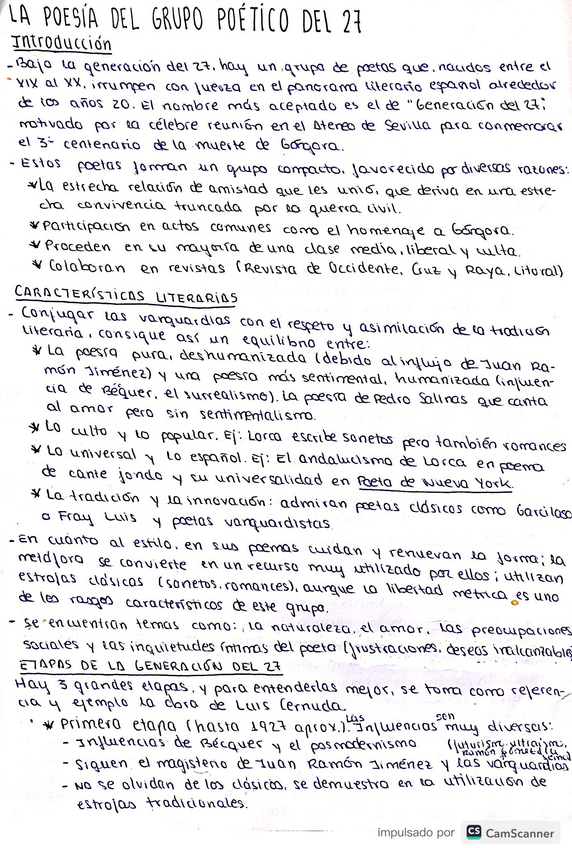 LA POESÍA DEL GRUPO POÉTICO DEL 27
Introducción
- Bajo la generación del 27, hay un grupo de poetas que, nacidos entre el
XIX al XX, irrumpen con fuerza en el panorama literario español alrededor
de los años 20. El nombre más aceptado es el de "Generación del 27",
motivado por la célebre reunión en el Ateneo de Sevilla para conmemorar
el 3º centenario de la muerte de Góngora.
- Estos poetas forman un grupo compacto, favorecido por diversas razones:
* La estrecha relación de amistad que les unió, que deriva en una estre-
cha convivencia truncada por la guerra civil.
* Participación en actos comunes como el homenaje a Góngora.
* Proceden en su mayoría de una clase media, liberal y culta.
* Colaboran en revistas (Revista de Occidente, Cruz y Raya, Litoral)
CARACTERÍSTICAS LITERARIAS
- Conjugar las vanguardias con el respeto y asimilación de la tradición
literaria, consigue así un equilibrio entre:
* La poesía pura, deshumanizada (debido al influjo de Juan Ra-
món Jiménez) y una poesía más sentimental, humanizada (influen-
cia de Béquer, el surrealismo). La poesía de Pedro Salinas que canta
al amor pero sin sentimentalismo.
* Lo culto y lo popular. Ej: Lorca escribe sonetos pero también romances
* Lo universal y lo español. Ej: El andalucismo de Lorca en poema
de cante jondo y su universalidad en Poeta de Nueva York.
* La tradición y la innovación: admiran poetas clásicos como Garcilaso
o Fray Luis y poetas vanguardistas.
- En cuánto al estilo, en sus poemas cuidan y renuevan la forma; la
metáfora se convierte en un recurso muy utilizado por ellos; utilizan
estrofas clásicas (sonetos, romances), aunque la libertad métrica es uno
de los rasgos característicos de este grupo.
- Se encuentran temas como: la naturaleza, el amor, las preocupaciones
sociales y las inquietudes íntimas del poeta (frustraciones, deseos inalcanzable
ETAPAS DE LA GENERACIÓN DEL 27
Hay 3 grandes etapas, y para entenderlas mejor, se toma como referen-
cia y ejemplo la obra de Luis Cernuda.
* Primera etapa (hasta 1927 aprox.). Las Influencias son muy diversas:
- Influencias de Bécquer y el posmodernismo
- Siguen el magisterio de Juan Ramón Jiménez y las vanguardias (futurismo, ultraísmo, Ramón Gómez de la
- No se olvidan de los clásicos, se demuestra en la utilización de
estrofas tradicionales.
impulsado por CS CamScanner